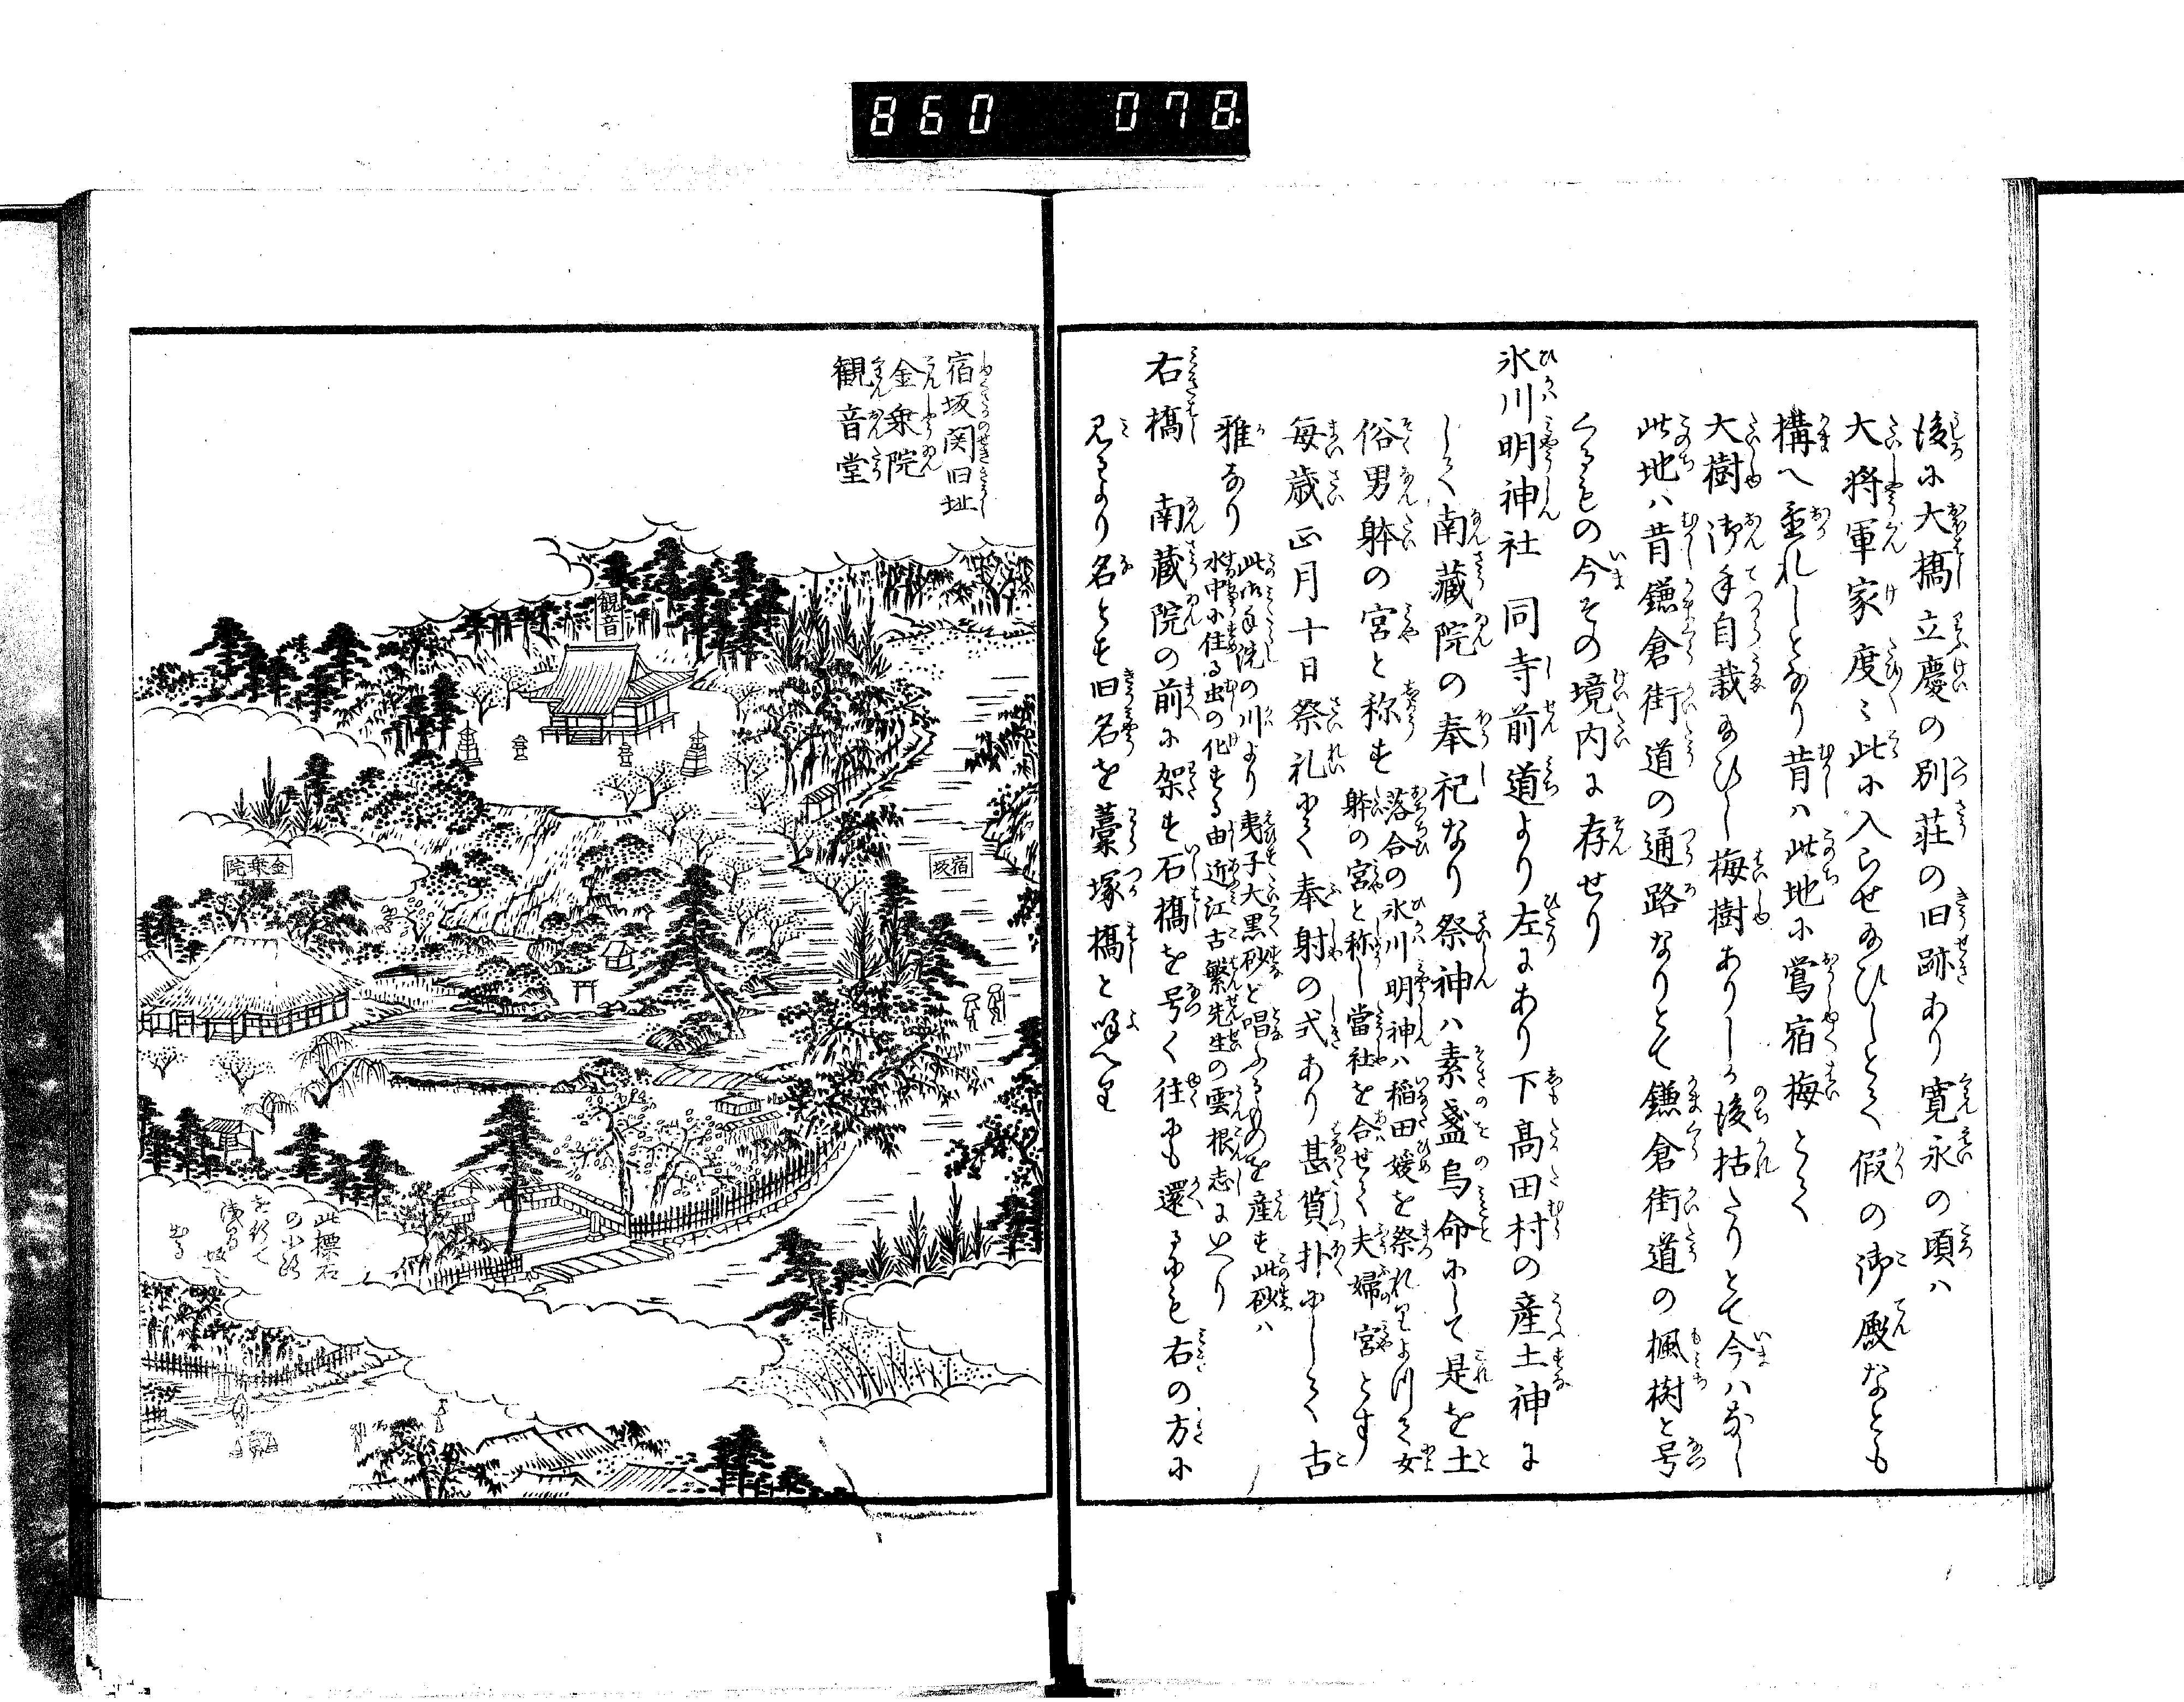 860 078
後に大橋立慶の別荘の旧跡あり寛永の頃ハ
大将軍家度〻此に入らせ給ひしとて假の御殿なとも
構へ置れしとなり昔ハ此地に鴬宿梅とて
大樹御手自栽給ひし梅樹ありしか後枯たりとて今ハなし
此地ハ昔鎌倉街道の通路なりとて鎌倉街道の楓樹と号
くるもの今その境内に存せり
氷川明神社 同寺前道より左にあり下高田村の産土神に
して南藏院の奉祀なり祭神ハ素盞烏命にして是を土
俗男躰の宮と称す
落合の氷川明神ハ稲田媛を祭れりよつて女
躰の宮と称し當社を合せて夫婦宮とす
毎歳正月十日祭礼にて奉射の式あり甚質朴にして古
雅なり
此南藏院の川より夷子大黒砂と唱ふるものを産す此砂ハ
水中に住る虫の化する由近江古繁先生の雲根志にいへり
右橋 南藏院の前に架す石橋を号く往にも還るにも右の方に
見るより名とす旧名を藁塚橋と呼へり
宿坂関旧址
金乗院
観音堂
観音
宿坂
金乗院
此標石
の小路